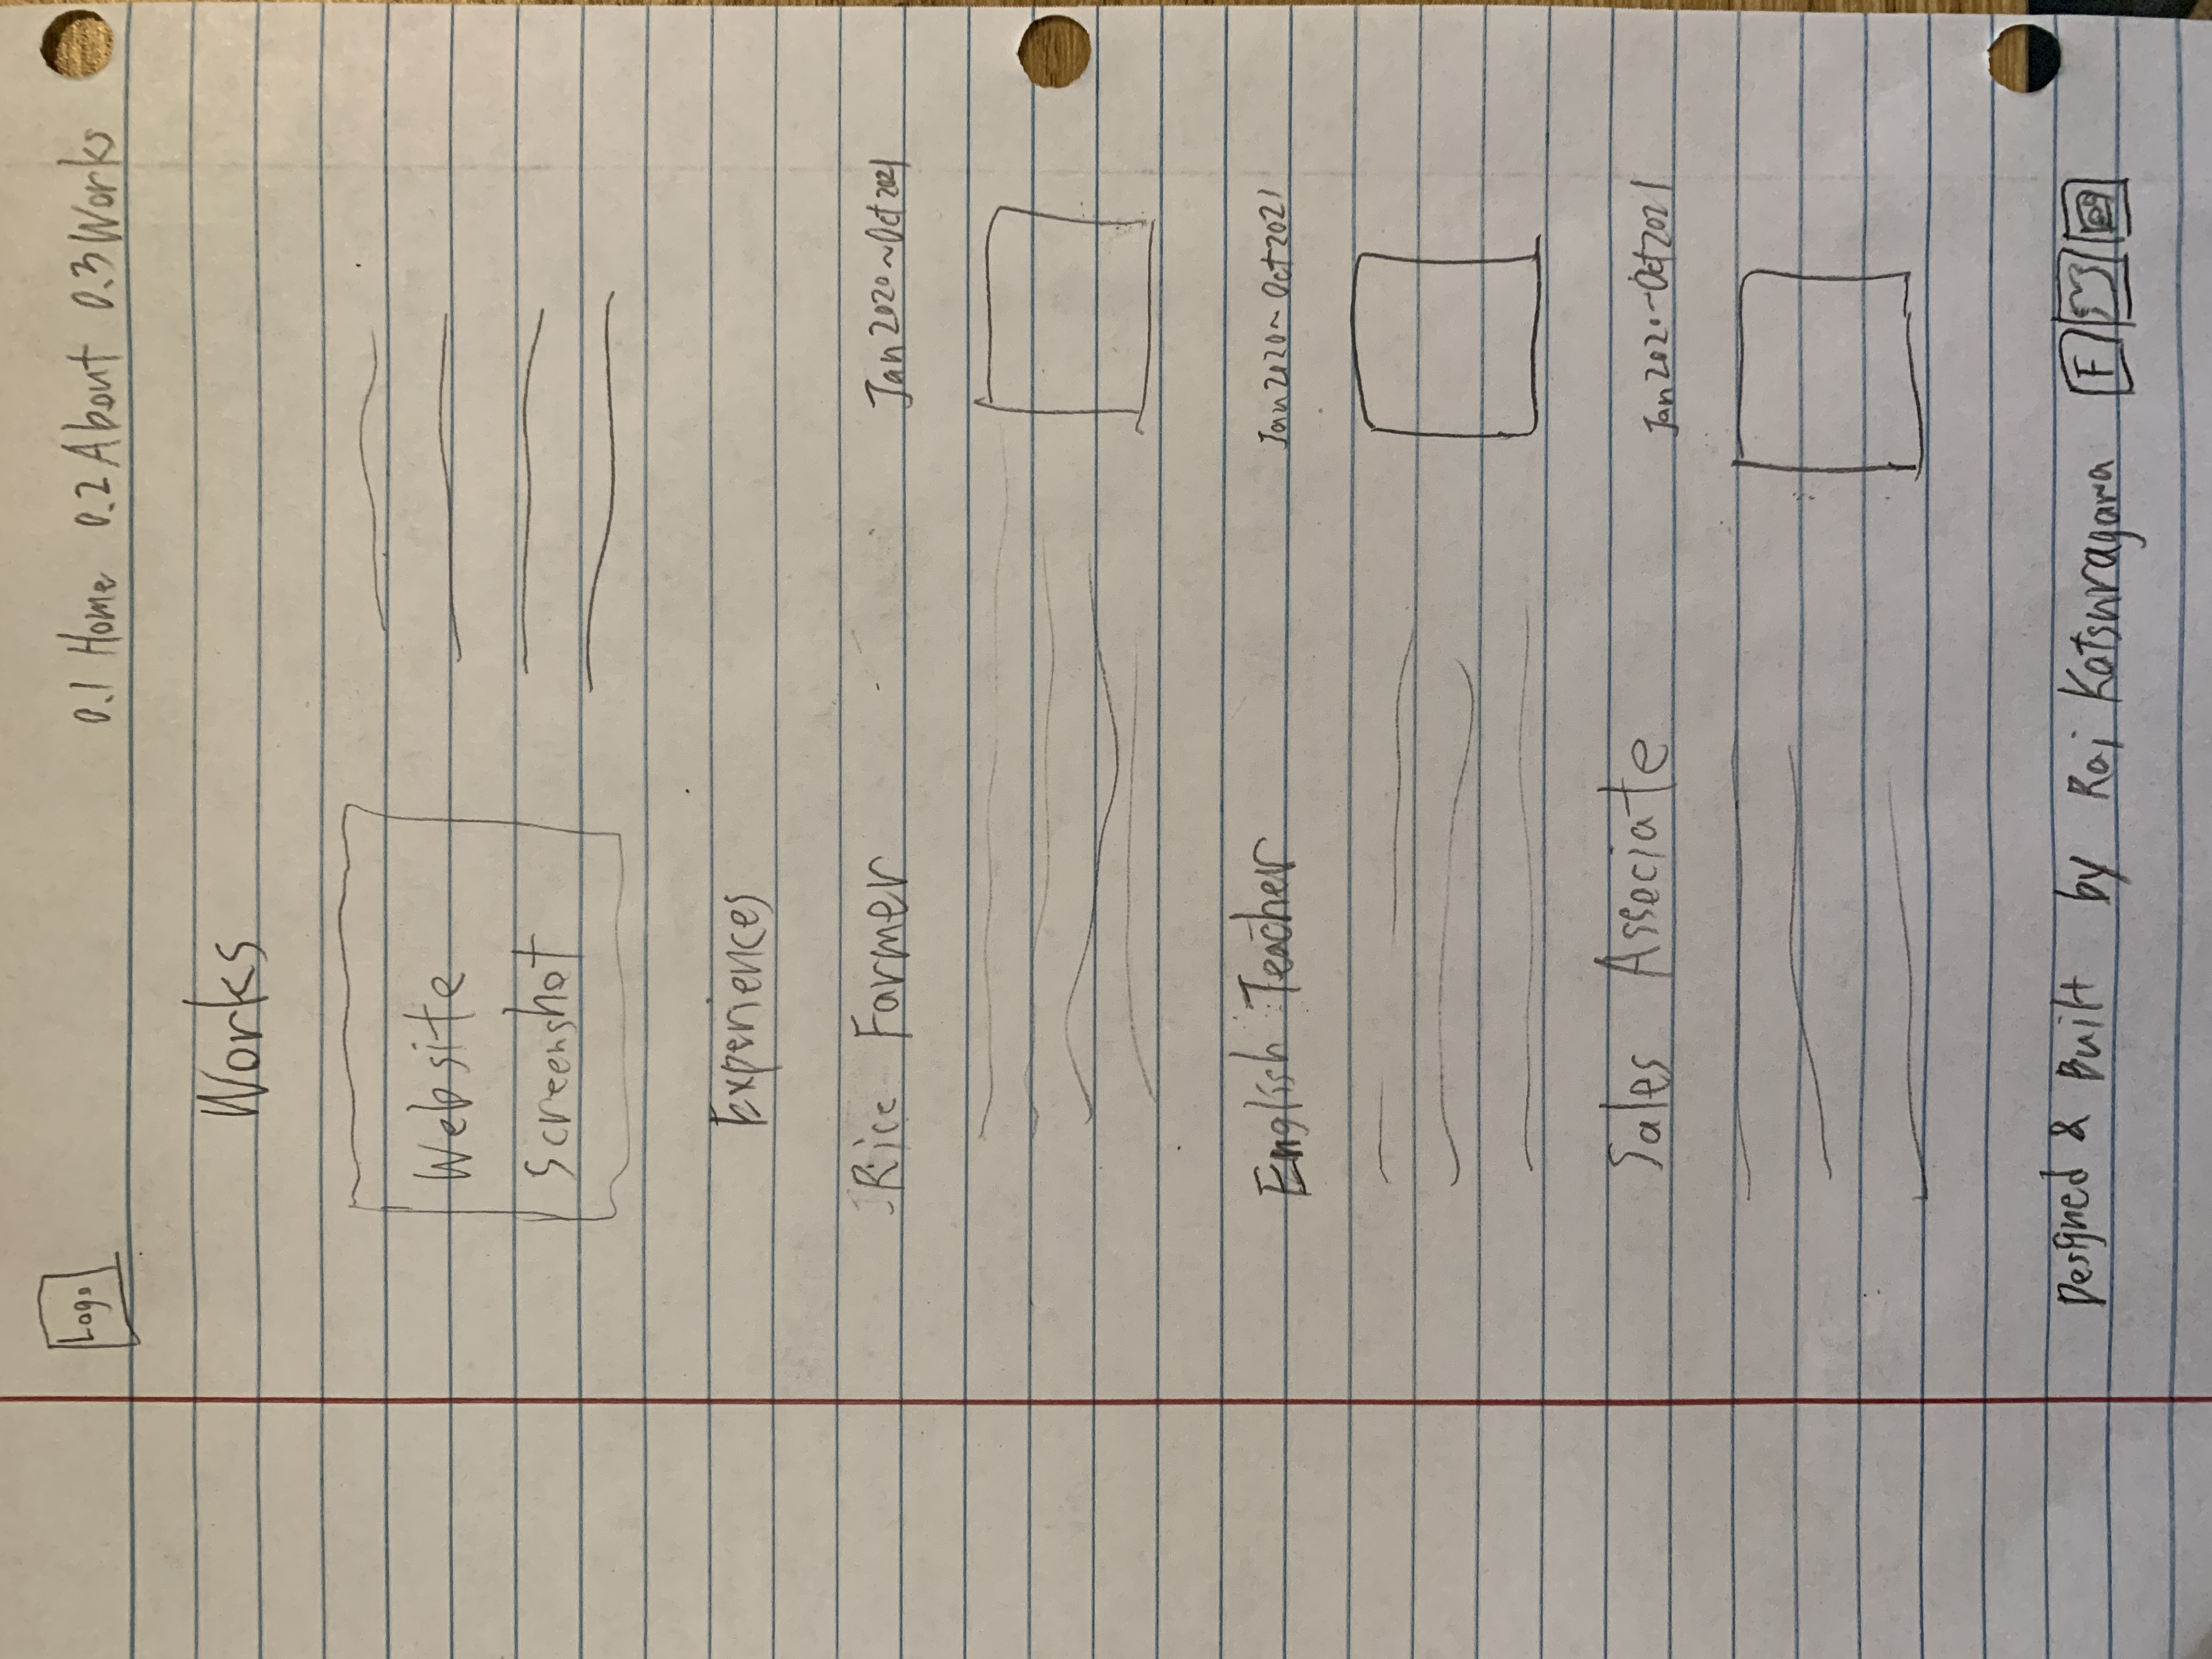 Logo
0.1 Home 0.2 About 0.3 Works
Works
Website
Screenshot
Experiences
Rice Farmer
Jan 2020~Oct 2021
English Teacher
Jan 2020~Oct 2021
Sales Associate
Jan 2020~Oct 2021
Designed & Built by Rai Katsuragawa F